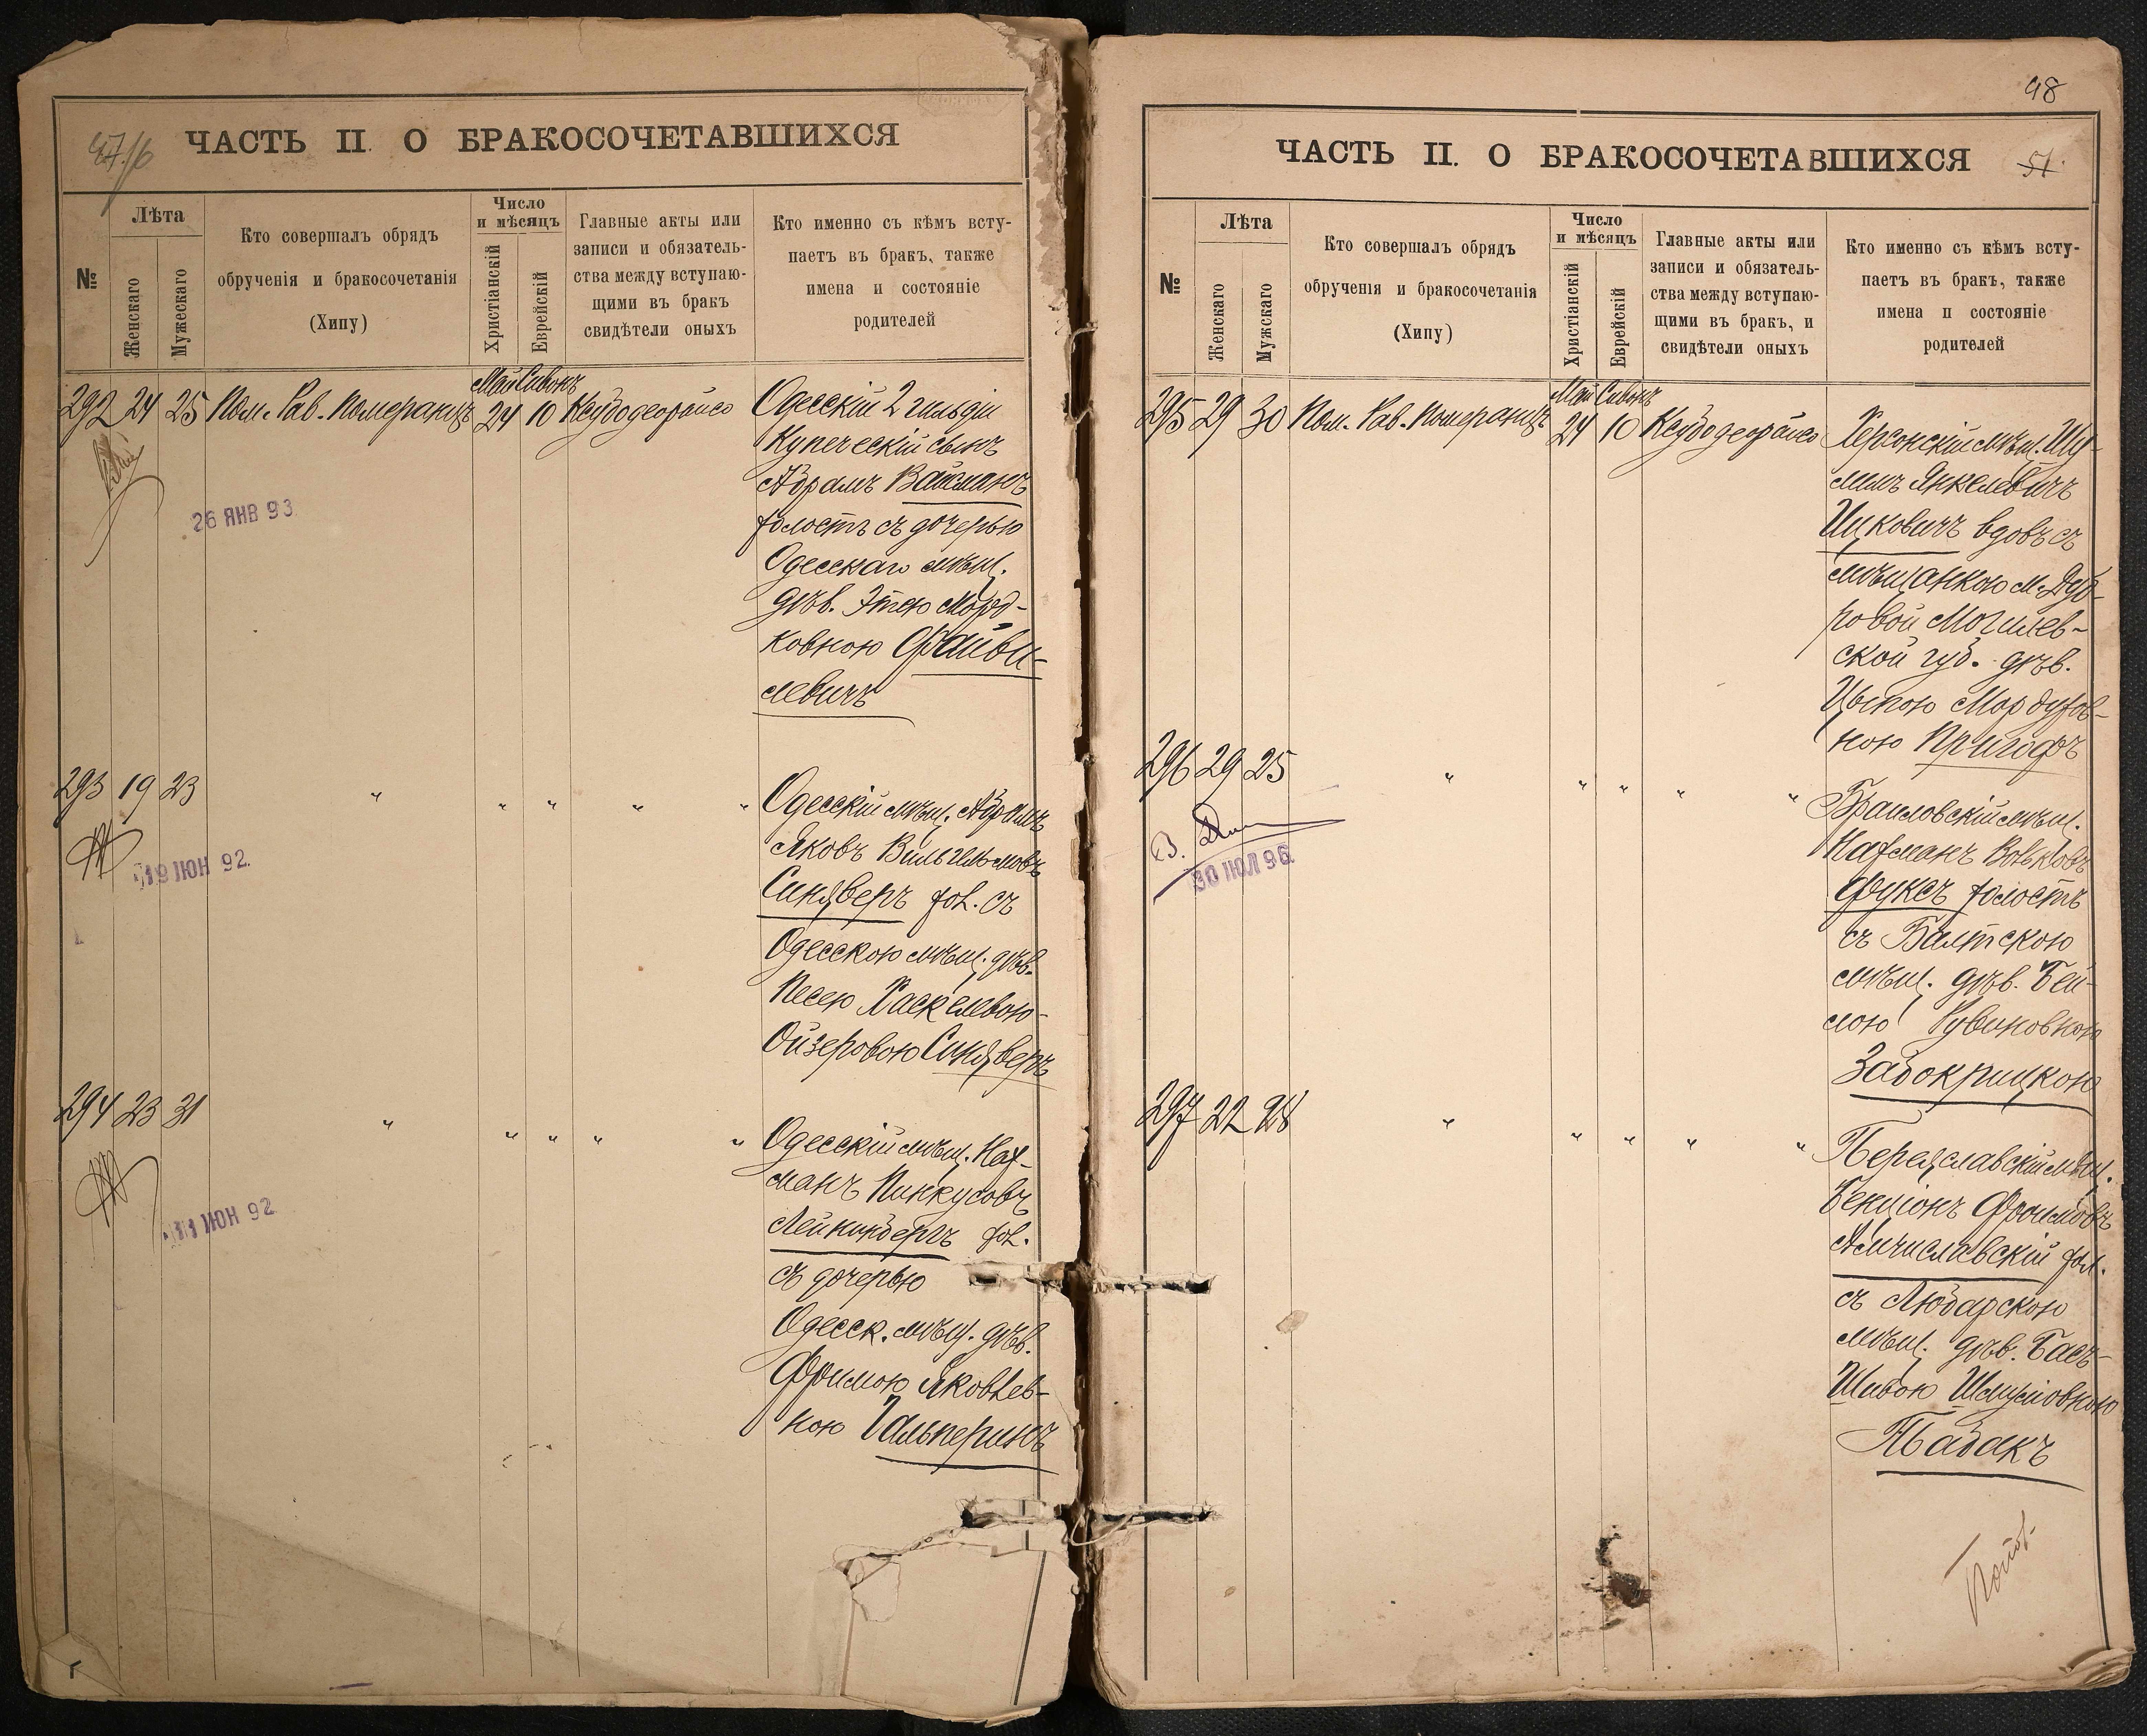 ЧАСТЬ II. О БРАКОСОЧЕТАВШИХСЯ
№
Лѣта
Женскаго
Мужескаго
Кто совершалъ обрядъ
обрученія и бракосочетанія
(Хипу)
Число
и мѣсяцъ
Христіанскій
Еврейскій
Главные акты или
записи и обязатель-
ства между вступаю-
щими въ бракъ
свидѣтели оныхъ
Кто именно съ кѣмъ всту-
паетъ въ бракъ, также
имена и состояніе
родителей
292 24 25 Пом. Рав. Померанцъ
Май Сивонъ
24 10
Одесскій 2 гильдіи
Купеческій сынъ
Абрамъ Вайсманъ
холостъ съ дочерью
Одесскаго мѣщ.
дѣв. Этею Морд-
ковною Файви-
левичъ
26 ЯНВ 93
293 19 23 " " " " "
Одесскій мѣщ. Абрамъ
Яковъ Вильгельмовъ
Синяверъ хол. съ
Одесскою мѣщ. дѣв.
Песею Хаскелевою-
Ойзеровою Синяверъ
19 ІЮН 92
294 23 31 " " " " "
Одесскій мѣщ. Нах-
манъ Пинкусовъ
Лейкинбергъ хол.
съ дочерью
Одесск. мѣщ. дѣв.
Фримою Яковлев-
ною Гальперинъ
11 ІЮН 92
48
ЧАСТЬ II. О БРАКОСОЧЕТАВШИХСЯ
51
№
Лѣта
Женскаго
Мужскаго
Кто совершалъ обрядъ
обрученія и бракосочетанія
(Хипу)
Число
и мѣсяцъ
Христіанскій
Еврейскій
Главные акты или
записи и обязатель-
ства между вступаю-
щими въ бракъ, и
свидѣтели оныхъ
Кто именно съ кѣмъ всту-
паетъ въ бракъ, также
имена и состояніе
родителей
295 29 30 Пом. Рав. Померанцъ
Май Сивонъ
24 10
Херсонскій мѣщ. Шу-
лимъ Янкелевичъ
Ицковичъ вдовъ съ
мѣщанкою м. Дуб-
ровой Могилев-
ской губ. дѣв.
Цыпою Мордухов-
ною Пригофъ
296 29 25 " " " " "
Браиловскій мѣщ.
Нахманъ Вольковъ
Фуксъ холостъ
съ Балтскою
мѣщ. дѣв. Бей-
лою Рувиновною
Забокрицкою
30 ІЮЛ 96
297 22 28 " " " " "
Переяславскій мѣщ.
Бенціонъ Фроимовъ
Амчиславскій хол.
съ Любарскою
мѣщ. дѣв. Бася-
Шивою Шмуліовною
Табакъ